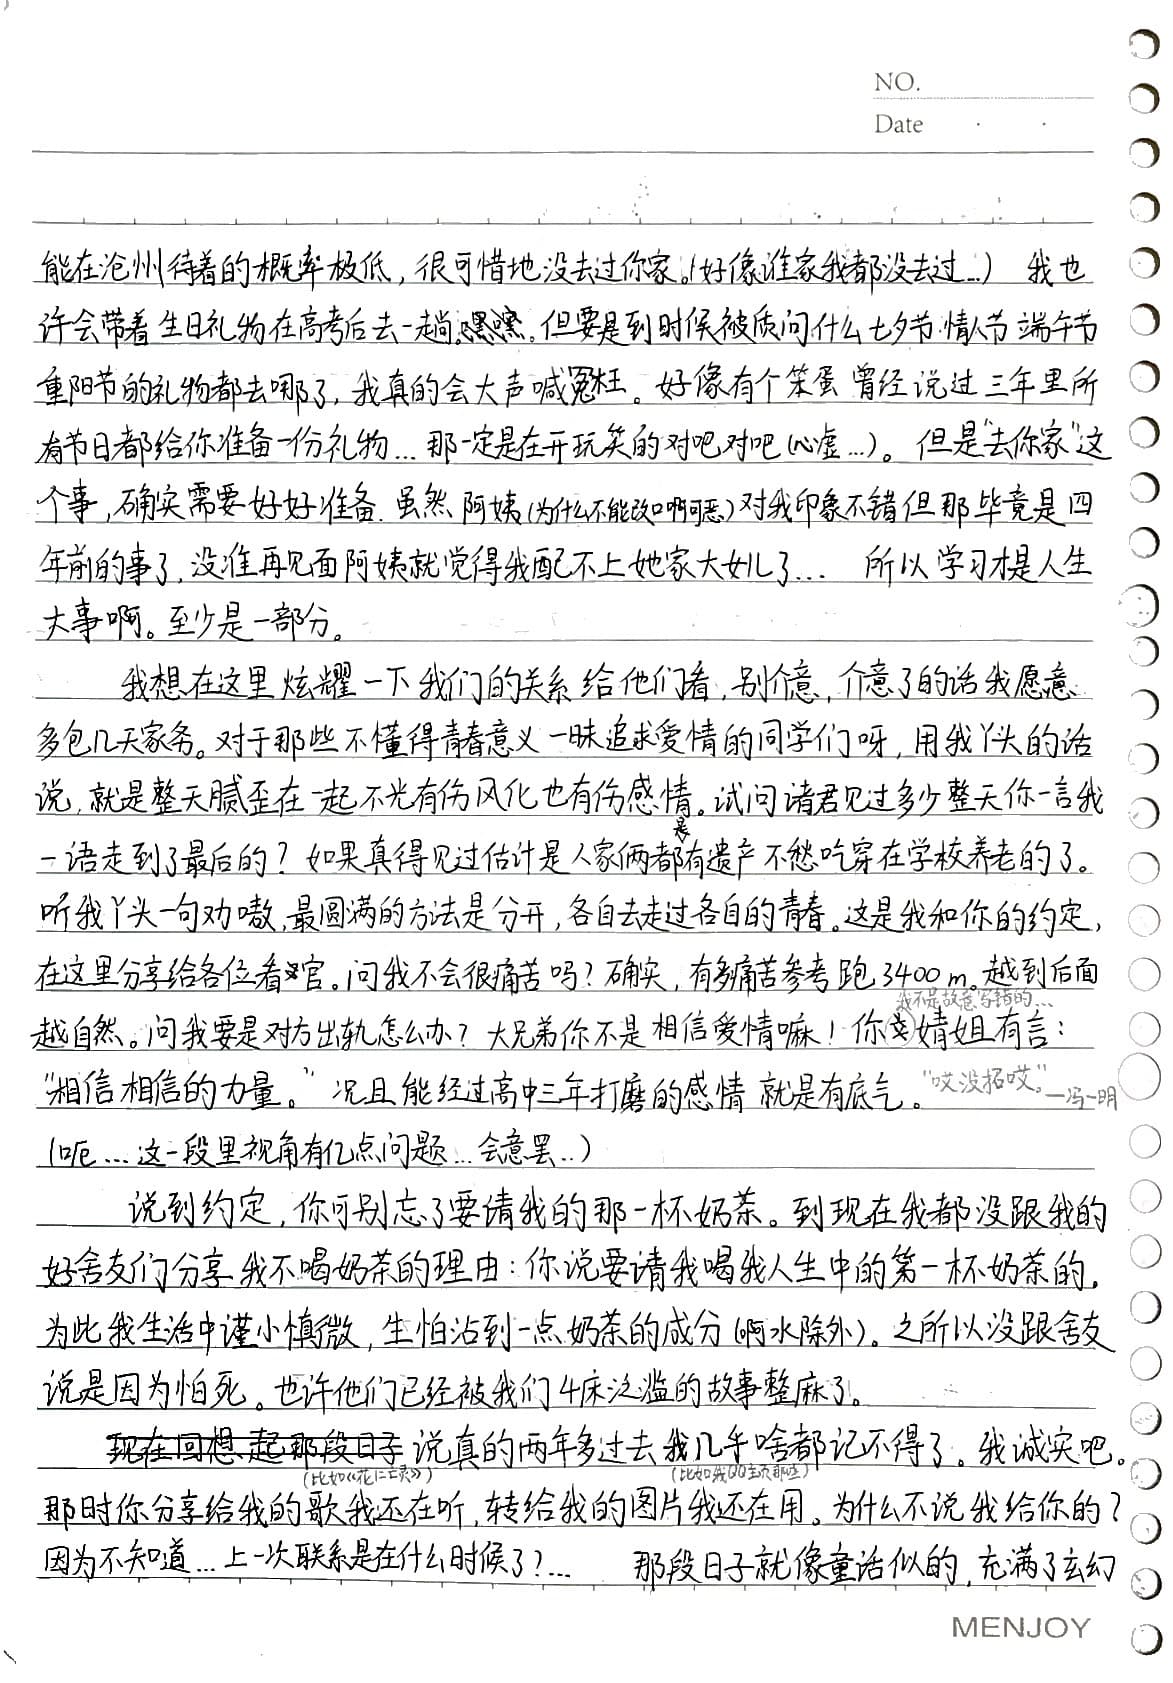 NO.
Date
能在沧州待着的概率极低，很可惜地没去过你家。(好像谁家我都没去过...) 我也
许会带着生日礼物在高考后去一趟。嘿嘿。但要是到时候被质问什么七夕节情人节端午节
重阳节的礼物都去哪了，我真的会大声喊冤枉。好像有个笨蛋曾经说过三年里所
有节日都给你准备一份礼物...那一定是在开玩笑的对吧对吧(心虚...)。但是“去你家”这
个事，确实需要好好准备.虽然阿姨(为什么不能改口啊可恶)对我印象不错但那毕竟是四
年前的事了，没准再见面阿姨就觉得我配不上她家大女儿了... 所以学习才是人生
大事啊。至少是一部分。
我想在这里炫耀一下我们的关系给他们看，别介意，介意了的话我愿意
多包几天家务。对于那些不懂得青春意义一昧追求爱情的同学们呀，用我丫头的话
说，就是整天腻歪在一起不光有伤风化也有伤感情。试问诸君见过多少整天你一言我
一语走到了最后的？如果真得见过估计是人家俩都是有遗产不愁吃穿在学校养老的了。
听我丫头一句劝嗷，最圆满的方法是分开，各自去走过各自的青春。这是我和你的约定，
在这里分享给各位看官。问我不会很痛苦吗？确实，有多痛苦参考跑3400m。越到后面
我不是故意写错的...
越自然。问我要是对方出轨怎么办？大兄弟你不是相信爱情嘛！你婧姐有言：
“相信相信的力量。”况且能经过高中三年打磨的感情就是有底气。“哎没招哎”—冯一明
(呃...这一段里视角有亿点问题...会意罢..)
说到约定，你可别忘了要请我的那一杯奶茶。到现在我都没跟我的
好舍友们分享我不喝奶茶的理由：你说要请我喝我人生中的第一杯奶茶的。
为此我生活中谨小慎微，生怕沾到一点奶茶的成分(啊水除外)。之所以没跟舍友
说是因为怕死。也许他们已经被我们4床泛滥的故事整麻了。
现在回想起那段日子说真的两年多过去我几乎啥都记不得了。我诚实吧。
(比如《花に亡霊》) (比如我QQ主页那些)
那时你分享给我的歌我还在听，转给我的图片我还在用。为什么不说我给你的？
因为不知道...上一次联系是在什么时候了？... 那段日子就像童话似的，充满了玄幻
MENJOY